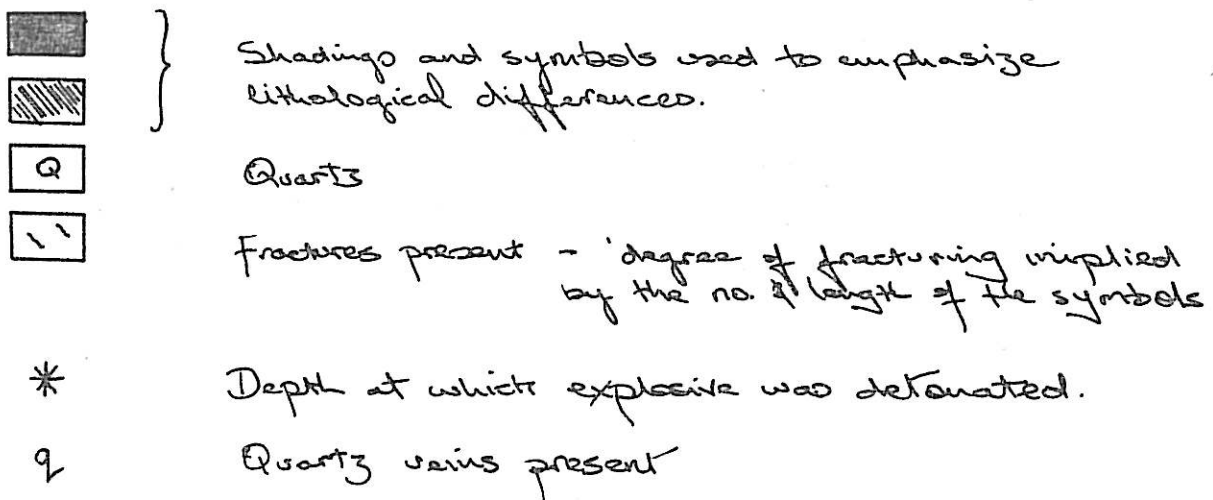 Shadings and symbols used to emphasize
lithological differences.
Q Quartz
Fractures present - degree of fracturing implied
by the no. & length of the symbols
* Depth at which explosive was detonated.
q Quartz veins present